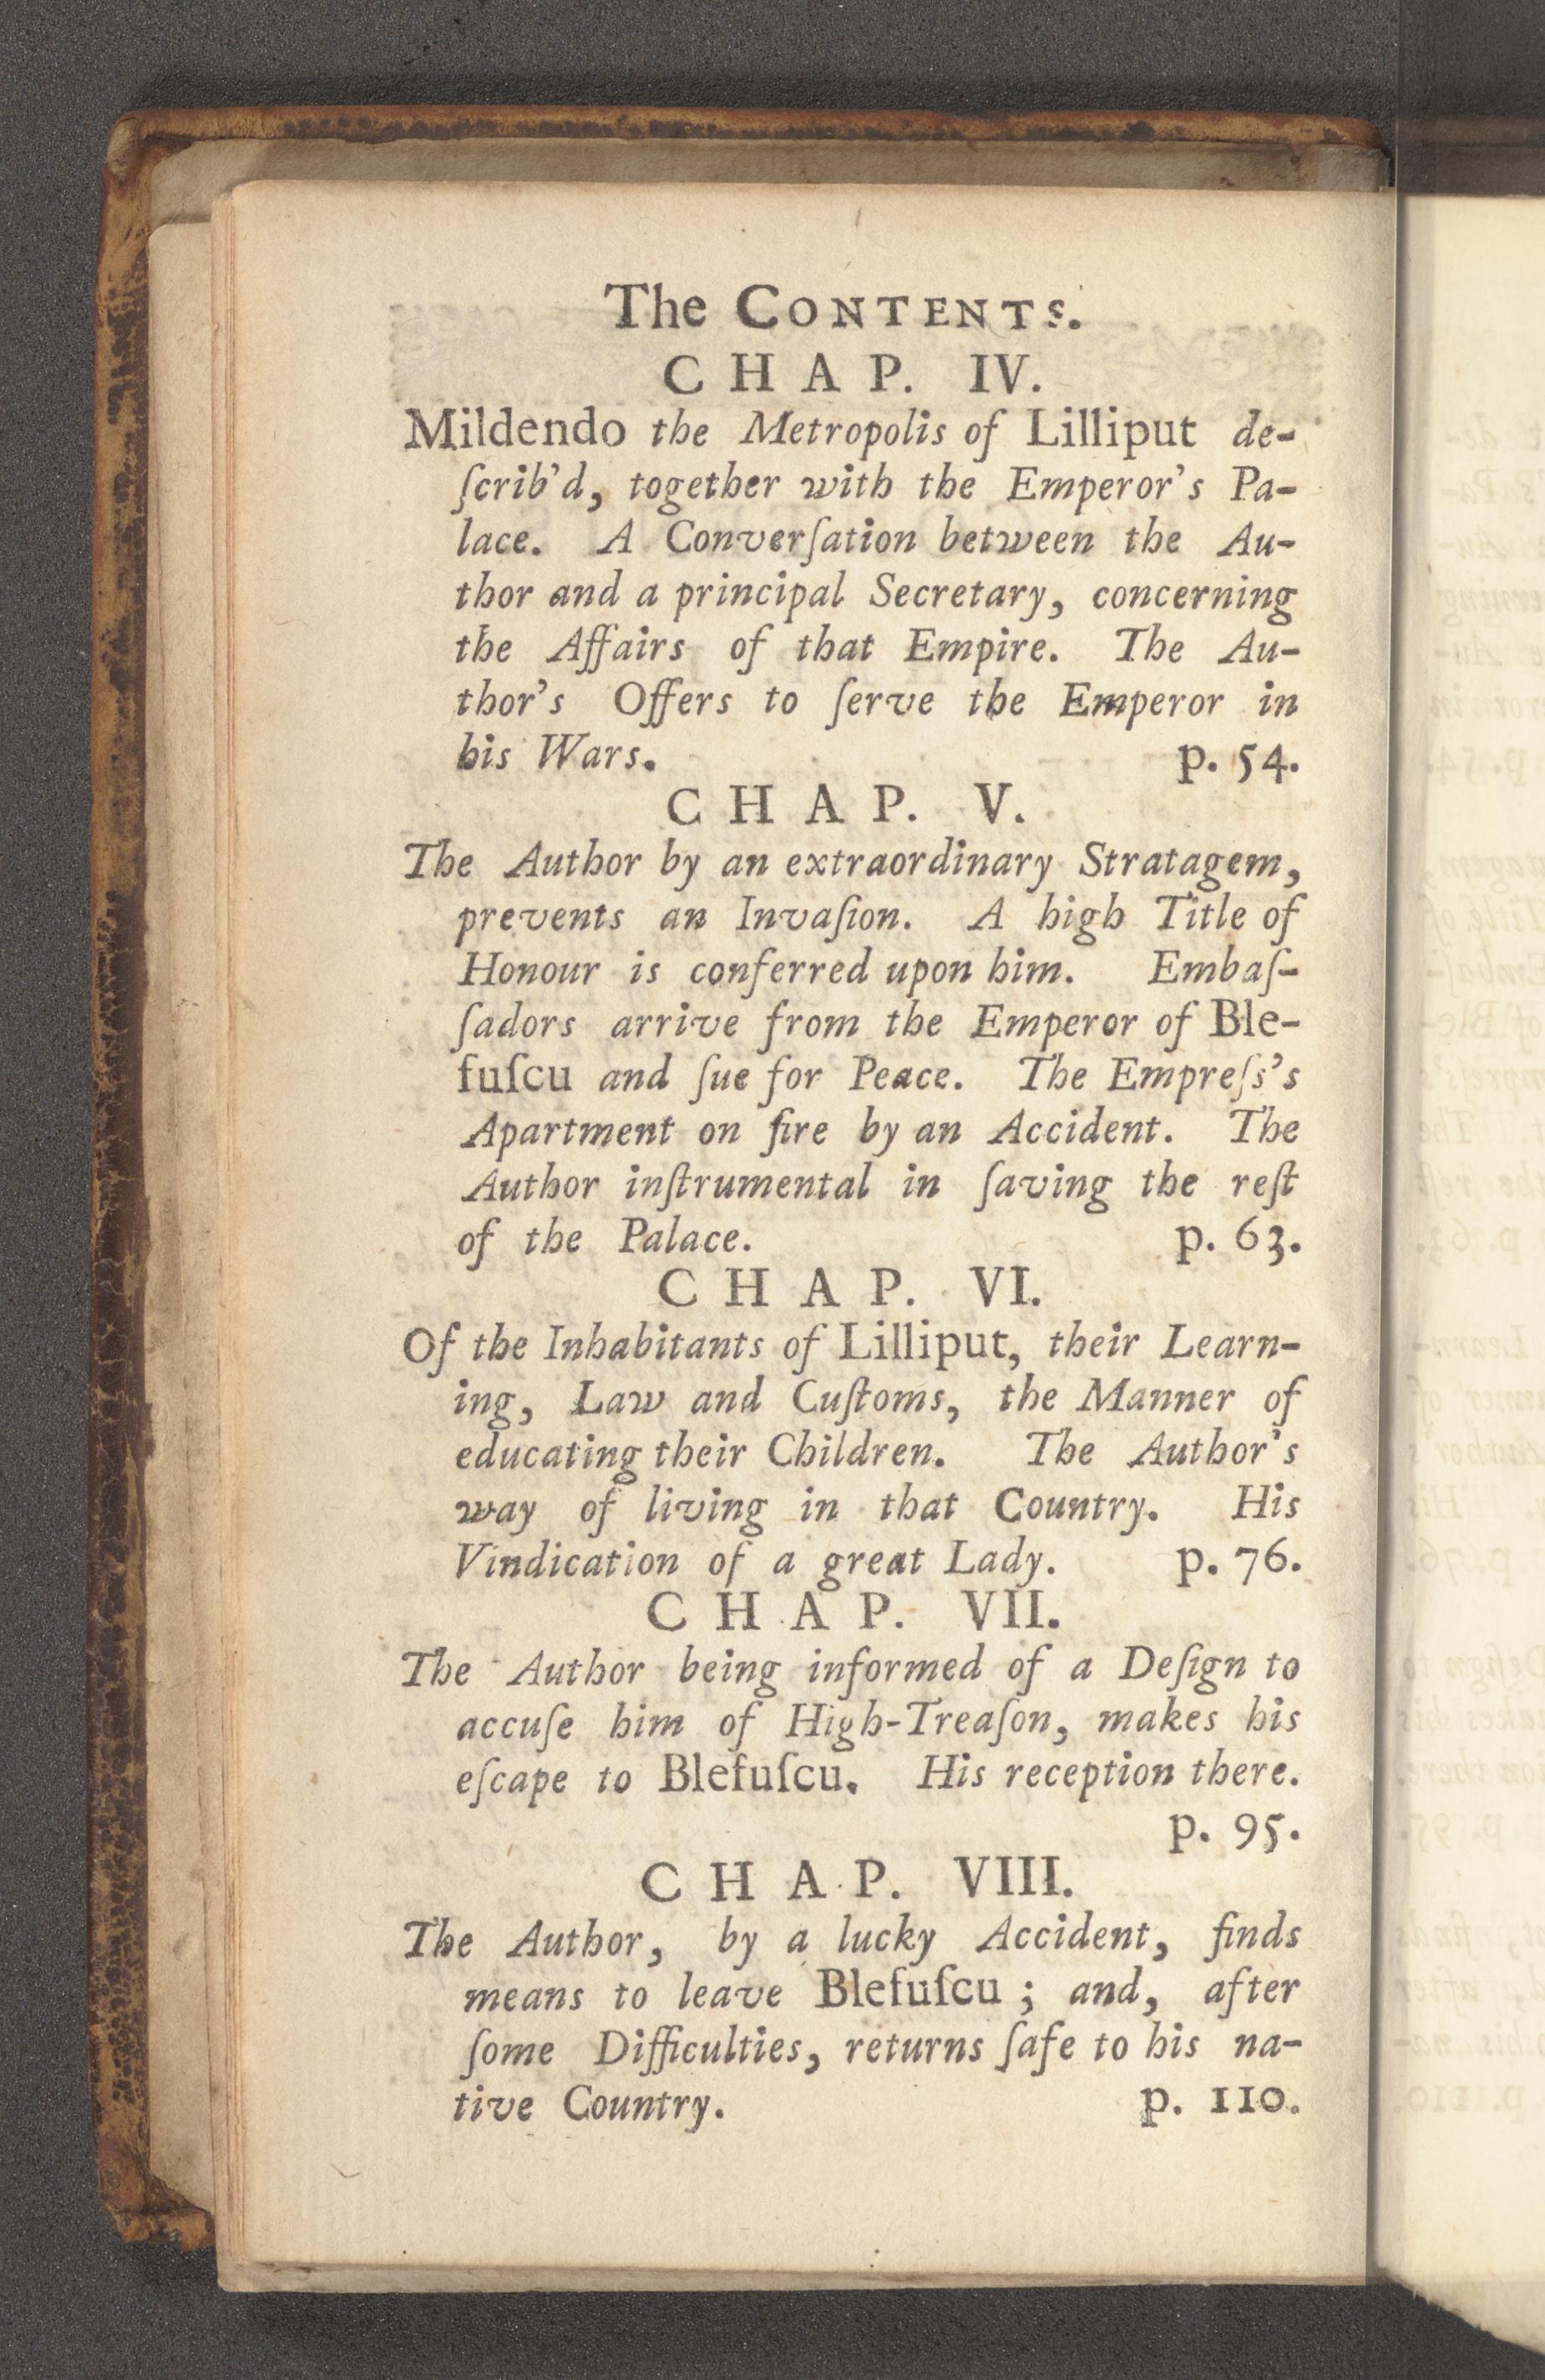 The CONTENTS.
CHAP. IV.
Mildendo the Metropolis of Lilliput de-
ſcrib'd, together with the Emperor's Pa-
lace. A Converſation between the Au-
thor and a principal Secretary, concerning
the Affairs of that Empire. The Au-
thor's Offers to ſerve the Emperor in
his Wars. p. 54.
CHAP. V.
The Author by an extraordinary Stratagem,
prevents an Invaſion. A high Title of
Honour is conferred upon him. Embaſ-
ſadors arrive from the Emperor of Ble-
fuſcu and ſue for Peace. The Empreſs's
Apartment on fire by an Accident. The
Author inſtrumental in ſaving the reſt
of the Palace. p. 63.
CHAP. VI.
Of the Inhabitants of Lilliput, their Learn-
ing, Law and Cuſtoms, the Manner of
educating their Children. The Author's
way of living in that Country. His
Vindication of a great Lady. p. 76.
CHAP. VII.
The Author being informed of a Deſign to
accuſe him of High-Treaſon, makes his
eſcape to Blefuſcu. His reception there.
p. 95.
CHAP. VIII.
The Author, by a lucky Accident, finds
means to leave Blefuſcu ; and, after
ſome Difficulties, returns ſafe to his na-
tive Country. p. 110.